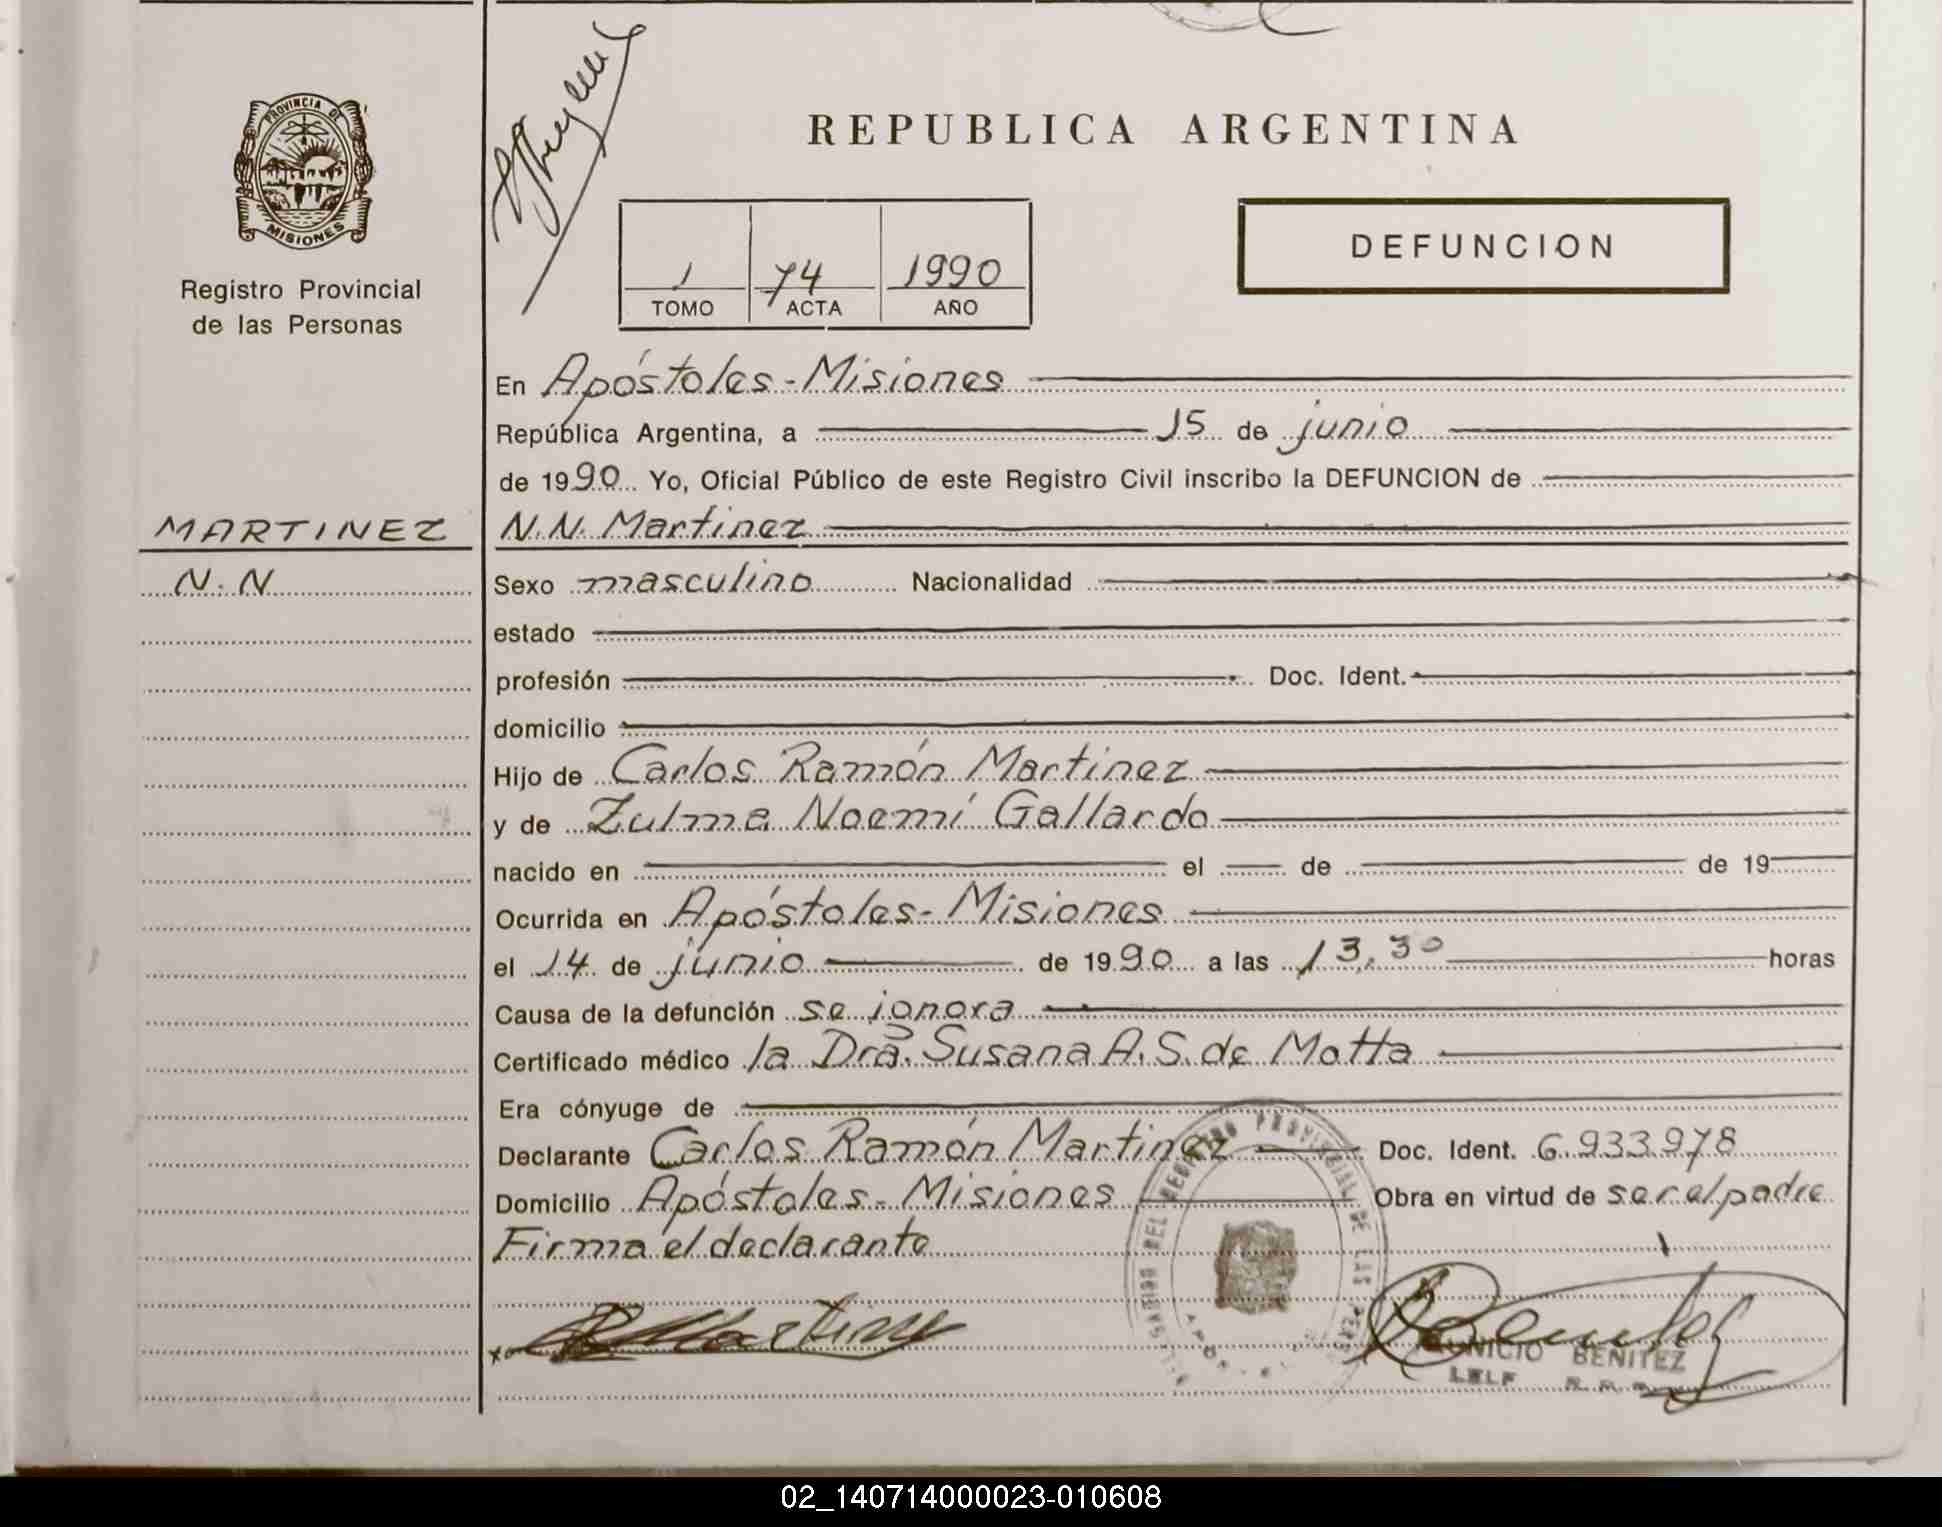 PROVINCIA DE
MISIONES
Registro Provincial
de las Personas
MARTINEZ
N.N
REPUBLICA ARGENTINA
1 74 1990
TOMO ACTA AÑO
DEFUNCION
En Apóstoles - Misiones
República Argentina, a 15 de junio
de 1990 Yo, Oficial Público de este Registro Civil inscribo la DEFUNCION de
N.N. Martinez
Sexo masculino Nacionalidad
estado
profesión Doc. Ident.
domicilio
Hijo de Carlos Ramón Martinez
y de Zulma Noemí Gallardo
nacido en el de de 19
Ocurrida en Apóstoles - Misiones
el 14 de junio de 1990 a las 13,30 horas
Causa de la defunción se ignora
Certificado médico la Dra. Susana A. S. de Motta
Era cónyuge de
Declarante Carlos Ramón Martinez Doc. Ident. 6.933.978
Domicilio Apóstoles - Misiones Obra en virtud de ser el padre
Firma el declarante
Martinez
BENITEZ
02_140714000023-010608